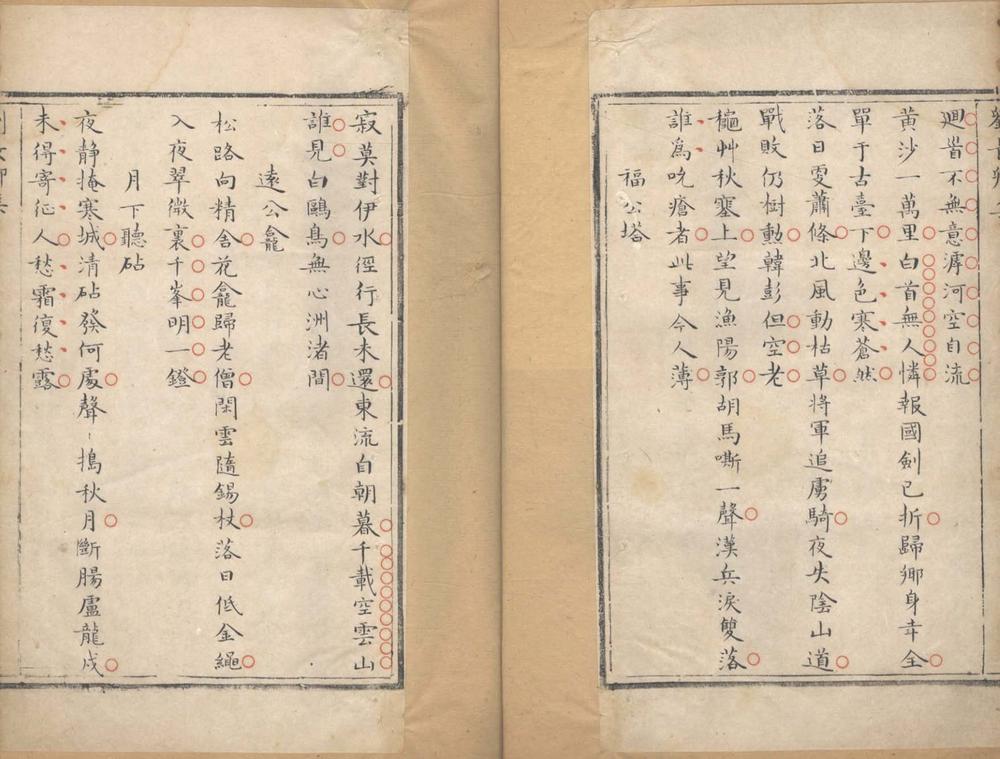 迴首不無意滹河空自流
黃沙一萬里白首無人憐報國劍已折歸鄉身幸全
單于古臺下邊色寒蒼然
落日更蕭條北風動枯草將軍追虜騎夜失陰山道
戰敗仍樹勳韓彭但空老
龝艸秋塞上望見漁陽郭胡馬嘶一聲漢兵淚雙落
誰爲吮瘡者此事今人薄
福公塔
寂莫對伊水徑行長未還東流自朝暮千載空雲山
誰見白鷗鳥無心洲渚間
遠公龕
松路向精舍花龕歸老僧閑雲隨錫杖落日低金繩
入夜翠微裏千峯明一鐙
月下聽砧
夜靜掩寒城清砧發何處聲〻搗秋月斷腸盧龍戍
未得寄征人愁霜復愁露